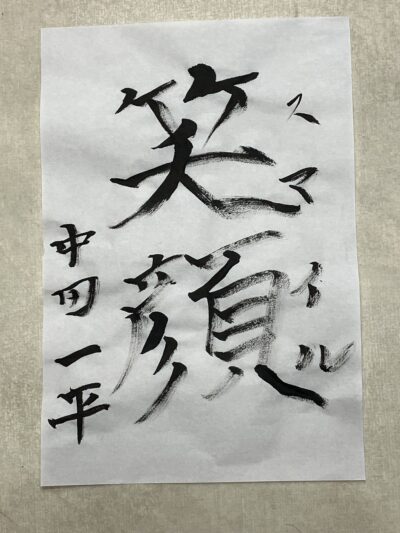 笑顔
スマイル
中田一平